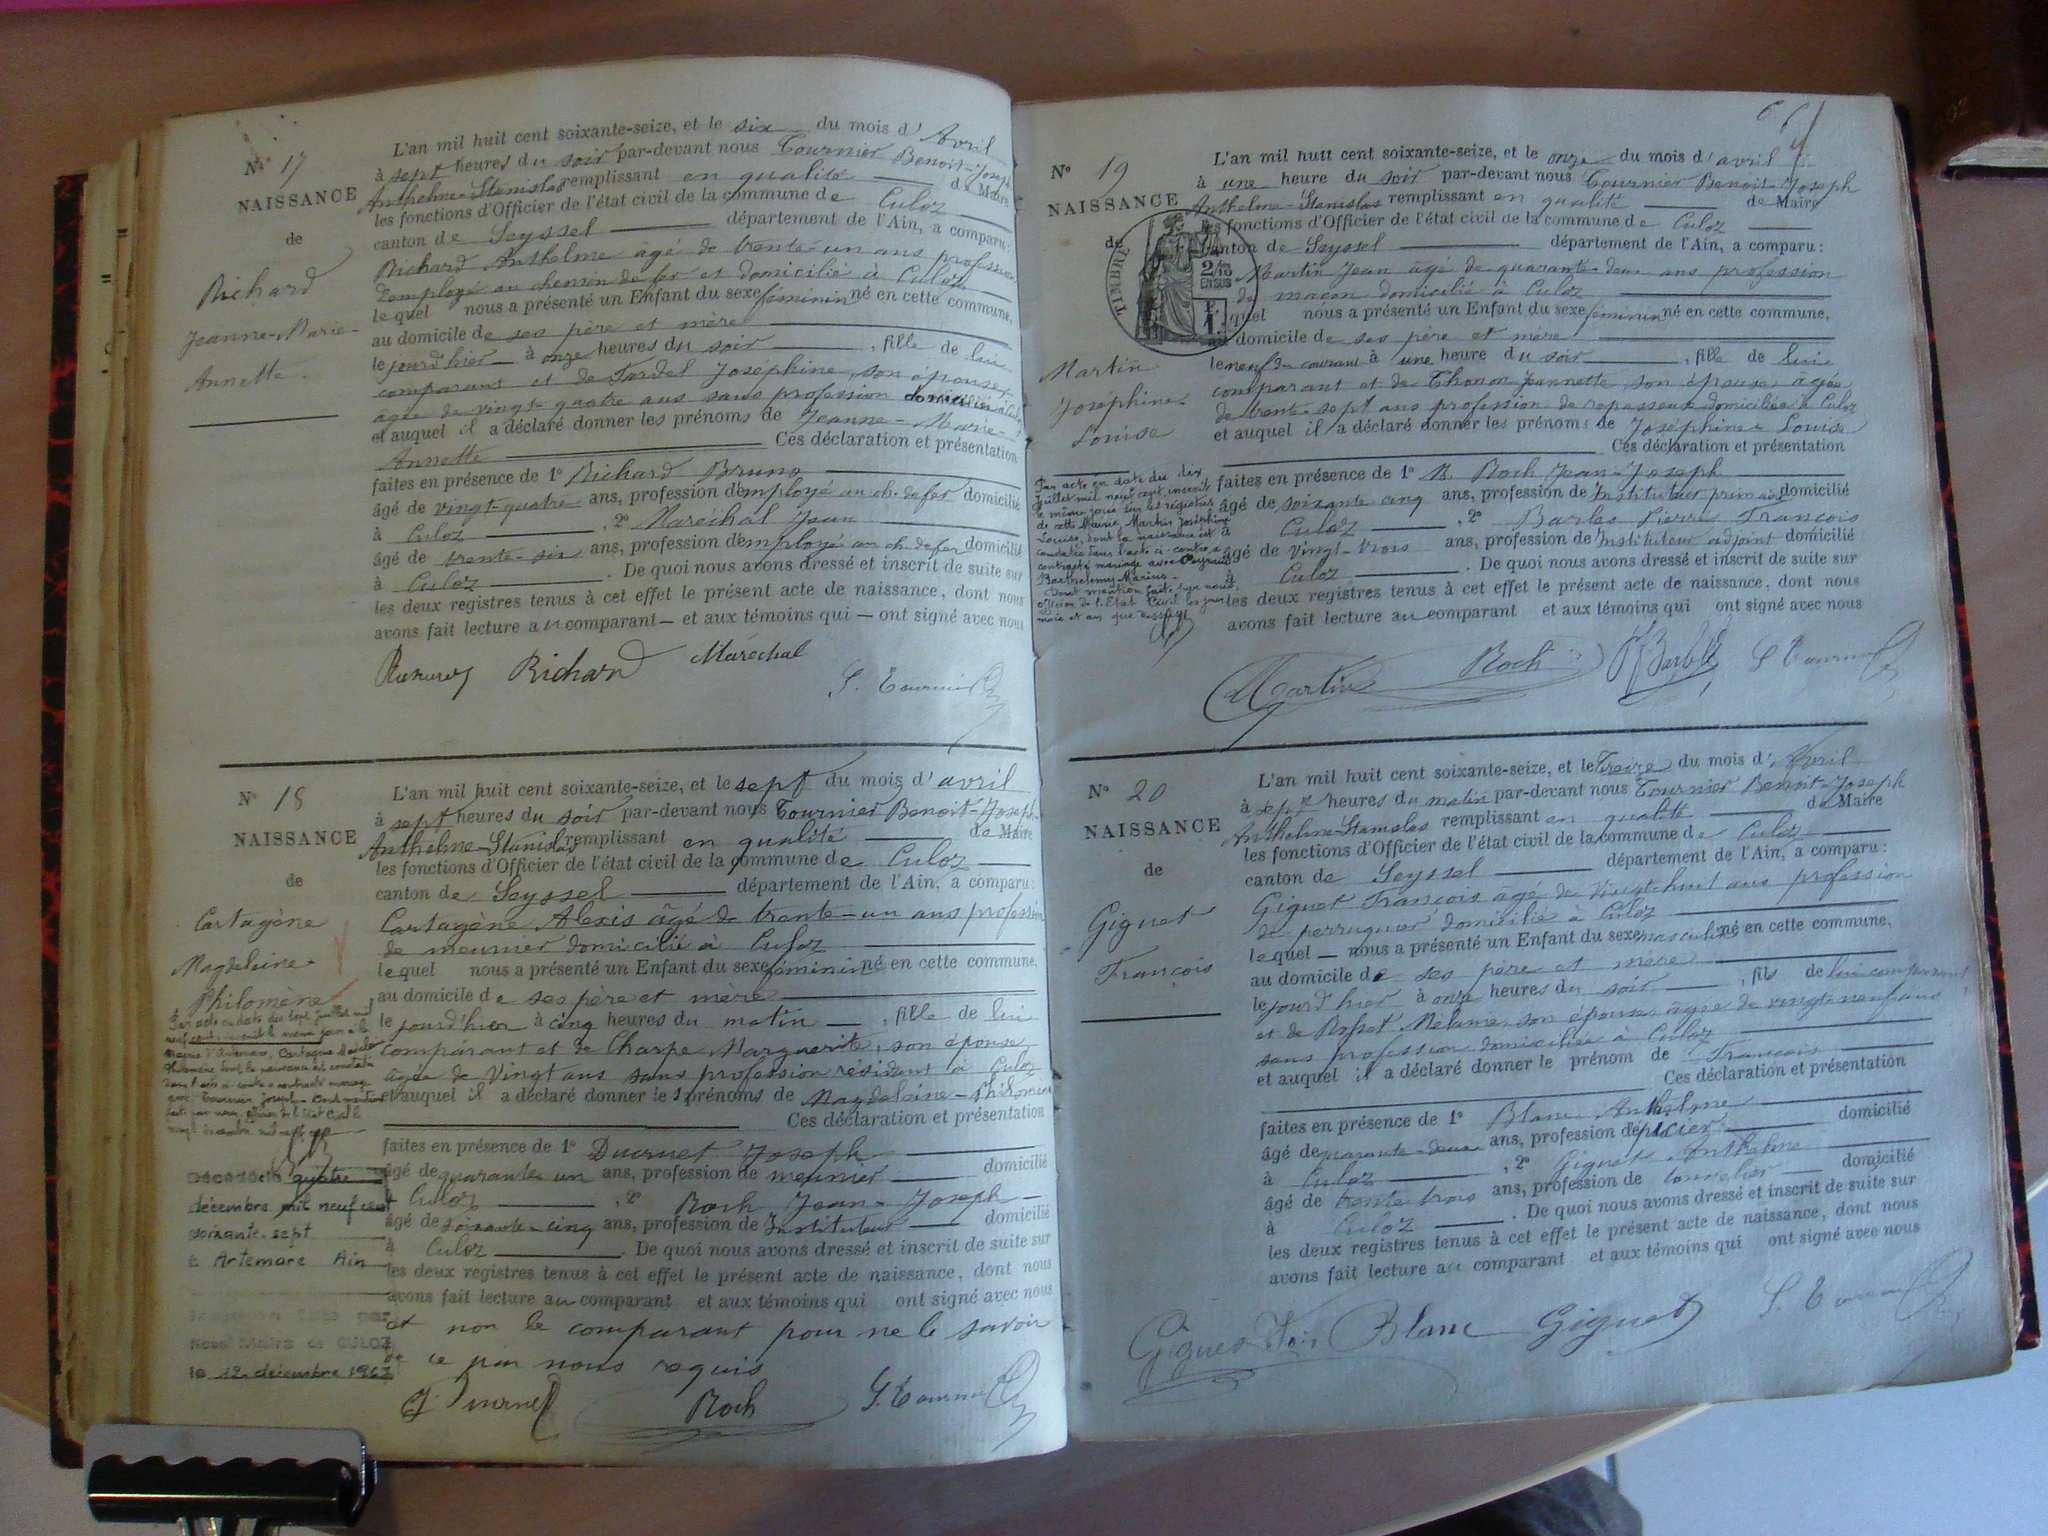 N° 17
NAISSANCE
de
Richard
Jeanne-Marie-
Annette.
L'an mil huit cent soixante-seize, et le six du mois d'Avril
à sept heures du soir par-devant nous Tournier Benoit-Joseph
Anthelme-Stanislas remplissant en qualité de Maire
les fonctions d'Officier de l'état civil de la commune de Culoz
canton de Seyssel département de l'Ain, a comparu:
Richard Anthelme âgé de trente-un ans profession
d'employé au chemin de fer et domicilié à Culoz
lequel nous a présenté un Enfant du sexe féminin né en cette commune,
au domicile de ses père et mère
le jourd'hier à onze heures du soir, fille de lui
comparant et de Sardel Josephine, son épouse,
âgée de vingt-quatre ans sans profession domiciliée à Culoz
et auquel il a déclaré donner les prénoms de Jeanne-Marie-
Annette Ces déclaration et présentation
faites en présence de 1° Richard Bruno
âgé de vingt-quatre ans, profession d'employé au ch. de fer domicilié
à Culoz, 2° Maréchal Jean
âgé de trente-six ans, profession d'employé au ch. de fer domicilié
à Culoz. De quoi nous avons dressé et inscrit de suite sur
les deux registres tenus à cet effet le présent acte de naissance, dont nous
avons fait lecture au comparant - et aux témoins qui - ont signé avec nous
Richard Maréchal
S. Tournier
N° 18
NAISSANCE
de
Cartagène
Magdeleine-
Philomène
Par acte en date du sept Juillet mil
neuf cent, inscrit le même jour à la
mairie d'Artemare, Cartagène Magdeleine
Philomène dont la naissance est constatée
dans l'acte ci-contre a contracté mariage
avec Tournier Joseph - Dont mention
faite par nous, officier de l'Etat Civil le
Décédée le quatre
décembre mil neuf cent
soixante-sept
à Artemare Ain
Mention faite par
Nous Maire de CULOZ
le 12 décembre 1967
L'an mil huit cent soixante-seize, et le sept du mois d'avril
à sept heures du soir par-devant nous Tournier Benoit-Joseph-
Anthelme-Stanislas remplissant en qualité de Maire
les fonctions d'Officier de l'état civil de la commune de Culoz
canton de Seyssel département de l'Ain, a comparu:
Cartagène Alexis âgé de trente-un ans profession
de meunier domicilié à Culoz
lequel nous a présenté un Enfant du sexe féminin né en cette commune,
au domicile de ses père et mère
le jourd'hier à cinq heures du matin, fille de lui
comparant et de Charpe Marguerite, son épouse,
âgée de vingt ans sans profession résidant à Culoz
et auquel il a déclaré donner les prénoms de Magdeleine-Philomène
Ces déclaration et présentation
faites en présence de 1° Ducruet Joseph
âgé de quarante-un ans, profession de meunier domicilié
à Culoz, 2° Roch Jean-Joseph
âgé de soixante-cinq ans, profession de Instituteur domicilié
à Culoz. De quoi nous avons dressé et inscrit de suite sur
les deux registres tenus à cet effet le présent acte de naissance, dont nous
avons fait lecture au comparant et aux témoins qui ont signé avec nous
et non le comparant pour ne le savoir
de ce par nous requis
Roch S. Tournier
N° 19
NAISSANCE
de
TIMBRE
2/10 EN SUS
Martin
Joséphine-
Louise
Par acte en date du dix
Juillet mil neuf cent, inscrit
le même jour sur les registres
de cette Mairie, Martin Joséphine
Louise, dont la naissance est
constatée dans l'acte ci-contre a
contracté mariage avec
Barthélemy Marius.
Dont mention faite par nous,
officier de l'Etat Civil les jour
mois et an que dessus
L'an mil huit cent soixante-seize, et le onze du mois d'avril
à une heure du soir par-devant nous Tournier Benoit-Joseph
Anthelme-Stanislas remplissant en qualité de Maire
les fonctions d'Officier de l'état civil de la commune de Culoz
canton de Seyssel département de l'Ain, a comparu:
Martin Jean âgé de quarante-deux ans profession
de maçon domicilié à Culoz
lequel nous a présenté un Enfant du sexe féminin né en cette commune,
au domicile de ses père et mère
le neuf du courant à une heure du soir, fille de lui
comparant et de Jeannette, son épouse, âgée
de trente-sept ans profession de repasseuse domiciliée à Culoz
et auquel il a déclaré donner les prénoms de Joséphine-Louise
Ces déclaration et présentation
faites en présence de 1° M. Roch Jean-Joseph
âgé de soixante cinq ans, profession de Instituteur primaire domicilié
à Culoz, 2° Barlet Pierre François
âgé de vingt-trois ans, profession de Instituteur adjoint domicilié
à Culoz. De quoi nous avons dressé et inscrit de suite sur
les deux registres tenus à cet effet le présent acte de naissance, dont nous
avons fait lecture au comparant et aux témoins qui ont signé avec nous
Martin Roch S. Tournier
N° 20
NAISSANCE
de
Giguet
François
L'an mil huit cent soixante-seize, et le treize du mois d'Avril
à sept heures du matin par-devant nous Tournier Benoit-Joseph
Anthelme-Stanislas remplissant en qualité de Maire
les fonctions d'Officier de l'état civil de la commune de Culoz
canton de Seyssel département de l'Ain, a comparu:
Giguet François âgé de vingt-huit ans profession
de perruquier domicilié à Culoz
lequel - nous a présenté un Enfant du sexe masculin né en cette commune,
au domicile de ses père et mère
le jourd'hier à onze heures du soir, fils de lui comparant
et de Rosset Mélanie, son épouse, âgée de vingt-neuf ans
sans profession domiciliée à Culoz
et auquel il a déclaré donner le prénom de François
Ces déclaration et présentation
faites en présence de 1° Blanc Anthelme domicilié
âgé de quarante-deux ans, profession d'épicier
à Culoz, 2° Giguet Anthelme
âgé de trente trois ans, profession de tonnelier domicilié
à Culoz. De quoi nous avons dressé et inscrit de suite sur
les deux registres tenus à cet effet le présent acte de naissance, dont nous
avons fait lecture au comparant et aux témoins qui ont signé avec nous
Blanc Giguet S. Tournier